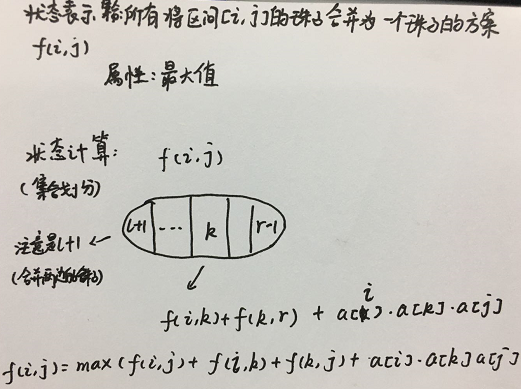 状态表示 集合:所有将区间[i,j]的珠子合并为一个珠子的方案
f(i,j)
属性:最大值
状态计算: f(i,j)
(集合划分)
l+1 ... k r-1
注意是l+1 ←
(合并两边的珠子)
i
f(i,k)+f(k,r) + a[k]·a[k]·a[j]
f(i,j)=max(f(i,j)+ f(i,k)+f(k,j)+ a[i]·a[k]a[j]